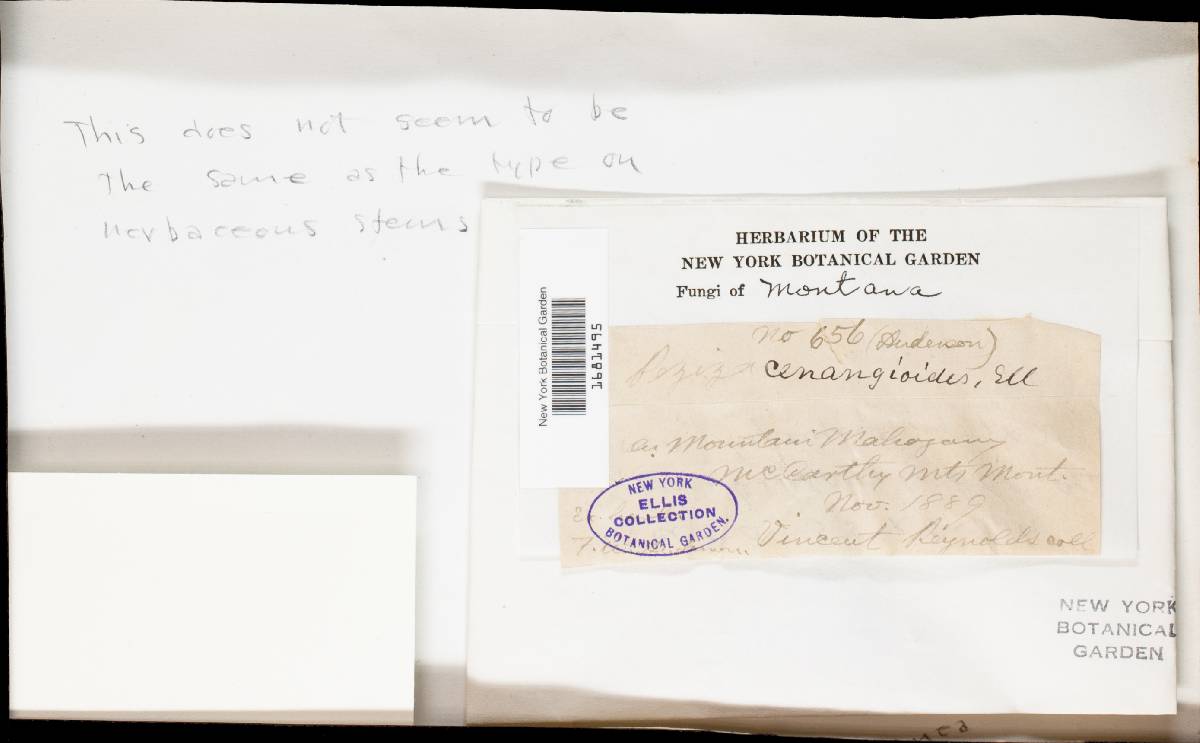 This does not seem to be
The same as the type on
herbaceous stems
HERBARIUM OF THE
NEW YORK BOTANICAL GARDEN
Fungi of Montana
New York Botanical Garden
1681495
No 656 (Anderson)
Peziza cenangioides, Ell
Mountain Mahogany
McCarthy Mts Mont.
Nov. 1889
Vincent Reynolds coll
NEW YORK
ELLIS
COLLECTION
BOTANICAL GARDEN.
NEW YORK
BOTANICAL
GARDEN